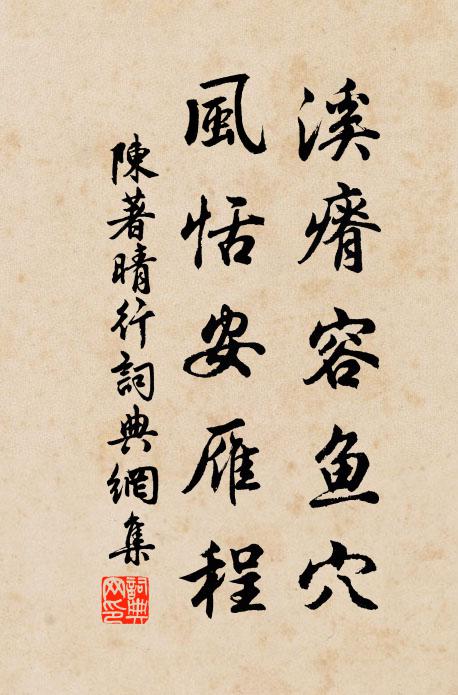 溪瘠容鱼穴
風恬安雁程
陳著晴行詞典網集
詞典網印